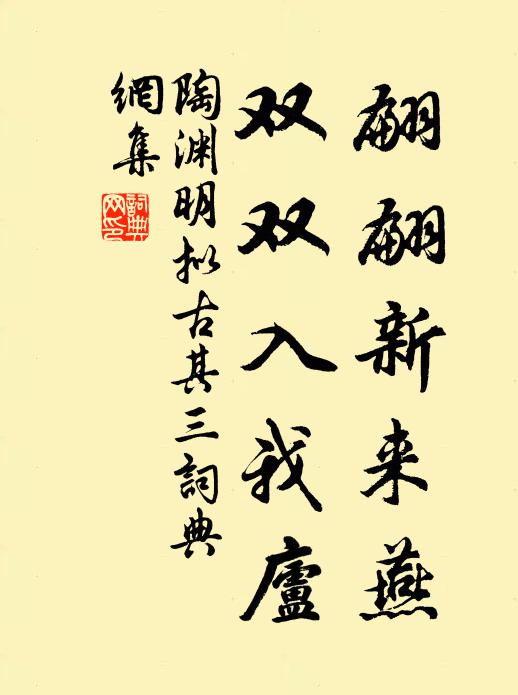 翩翩新来燕
双双入我廬
陶渊明拟古其三詞典
網集
詞典
网印